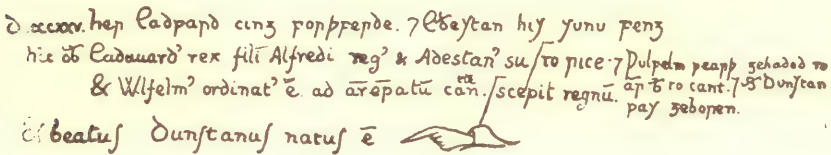 her Eadƿard cing forþferde. ⁊ Æðestan his sunu feng
hic ob̄ Eadauard' rex filī Alfredi reg' & Adestan' su/to rice. ⁊ Ƿulfelm ƿearþ gehadod to
& Wlfelm' ordinat' ē. ad arēpatū can. /scepit regnū. to cant. ⁊ Dunstan
ƿas geboren.
beatus Dunstanus natus ē